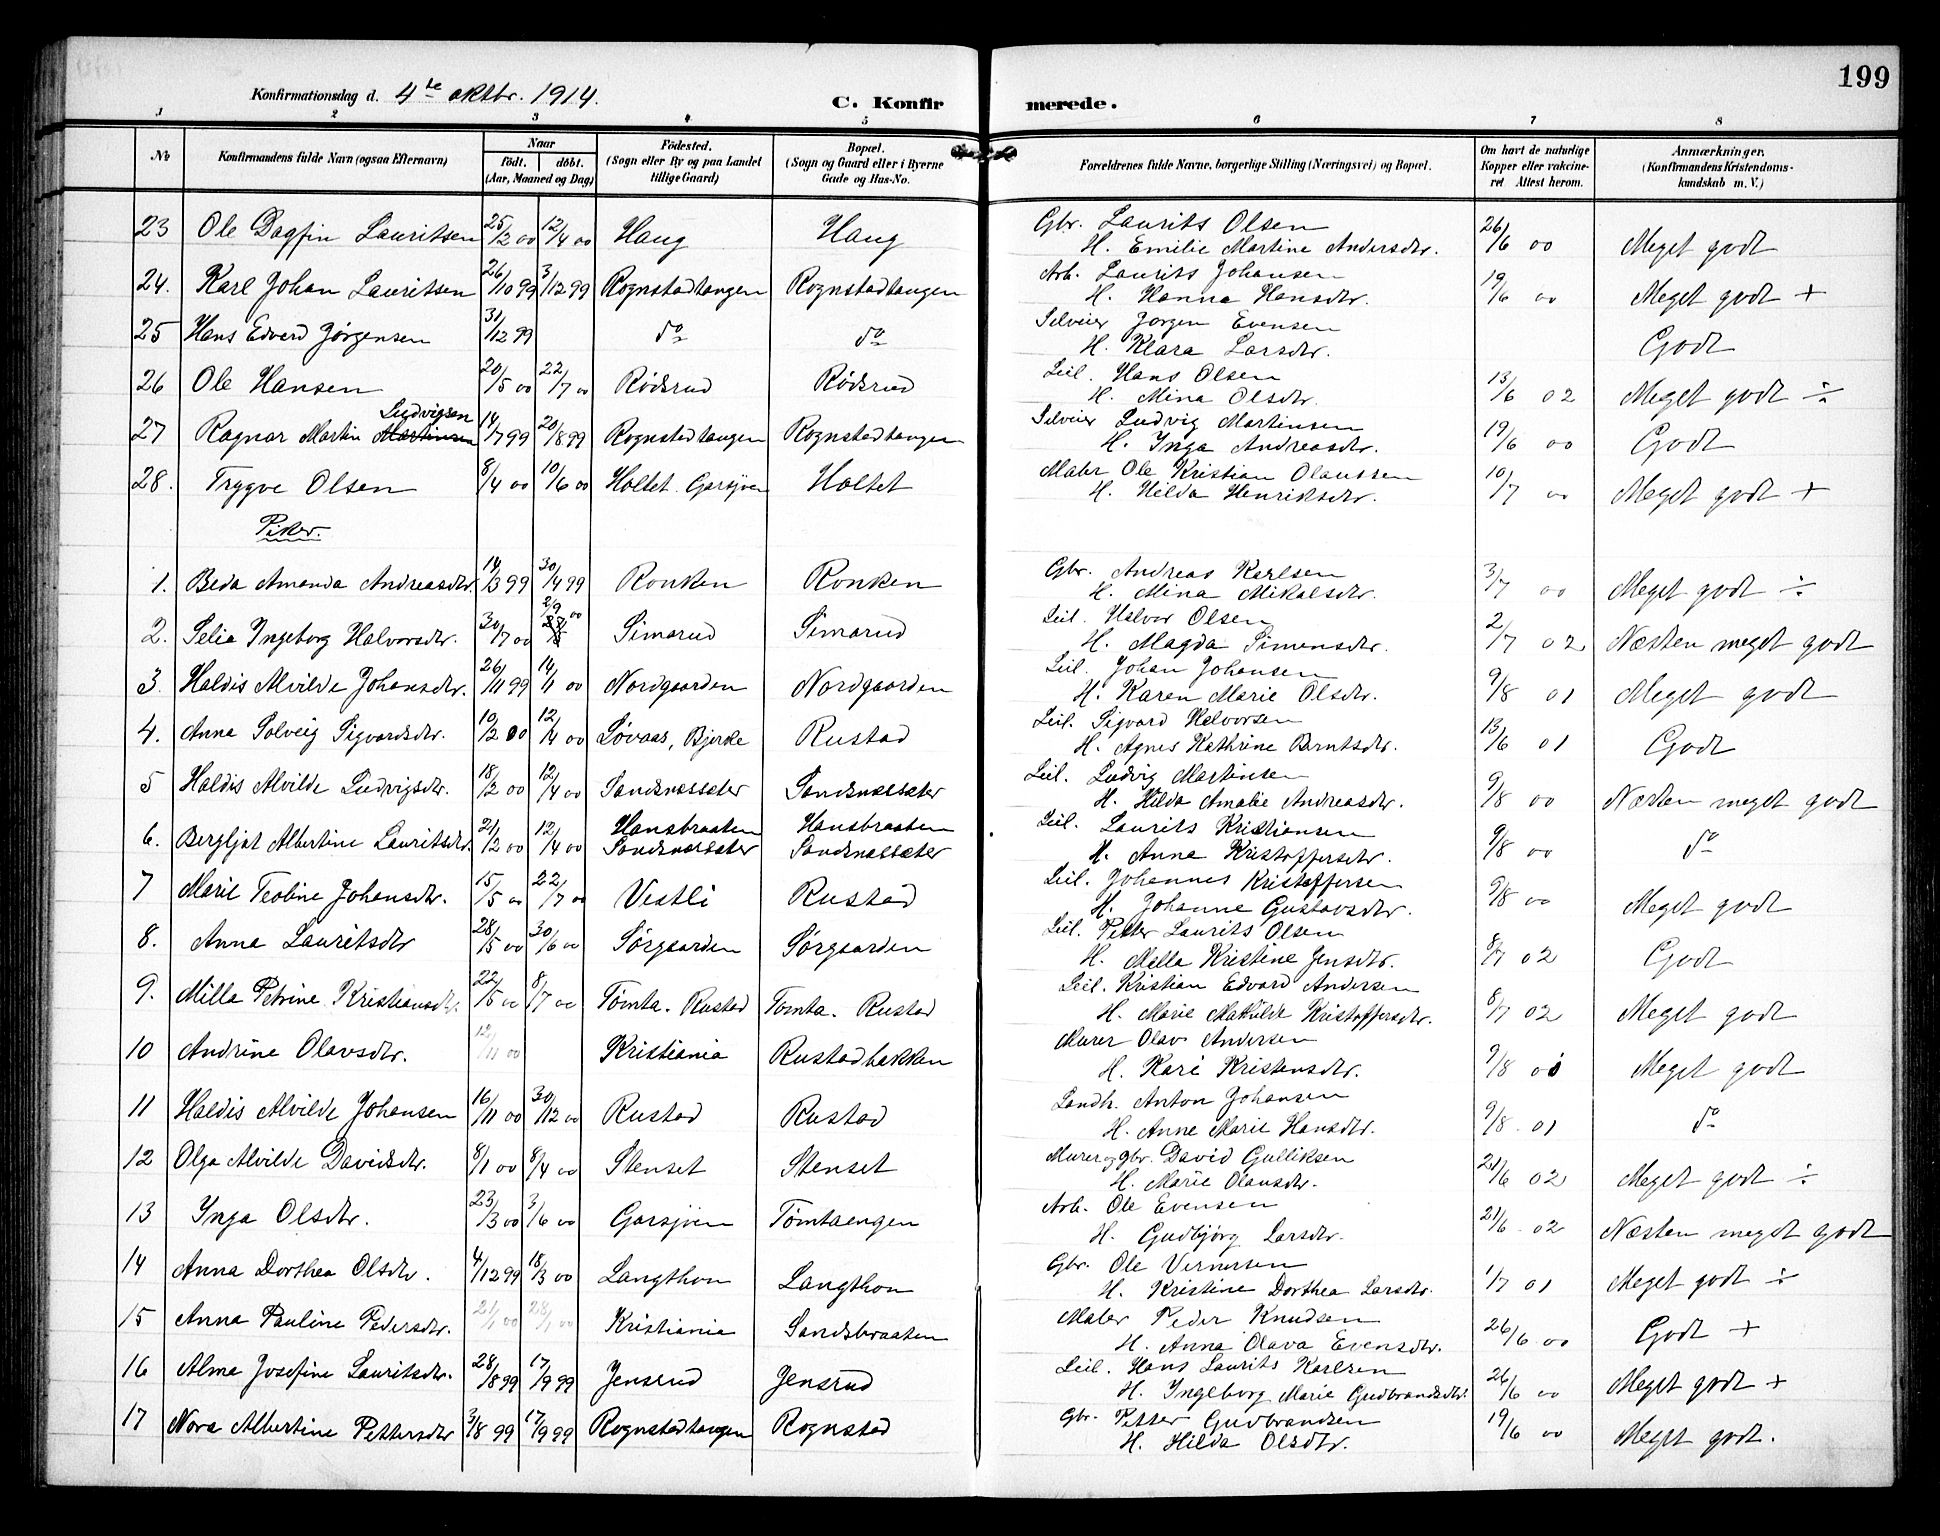 199
Konfirmationsdag d. 4de oktbr. 1914.
C. Konfirmerede.
1 2 3 4 5 6 7 8
No
Konfirmandens fulde Navn (ogsaa Efternavn)
Naar
født. døbt.
(Aar, Maaned og Dag)
Fødested.
(Sogn eller By og paa Landet
tillige Gaard)
Bopæl.
(Sogn og Gaard eller i Byerne
Gade og Hus-No.
Forældrenes fulde Navne, borgerlige Stilling (Næringsvei) og Bopæl.
Om havt de naturlige
Kopper eller vakcine-
ret Attest herom.
Anmærkninger.
(Konfirmandens Kristendoms-
kundskab m. V.)
23 Ole Dagfin Lauritsen 25/2 00 12/4 00 Haug Haug Gbr. Laurits Olsen
H. Emilie Martine Andersdtr. 26/6 00 Meget godt
24. Karl Johan Lauritsen 26/10 99 3/12 99 Rognstadtangen Rognstadtangen Arb. Laurits Johansen
H. Hanna Hansdtr. 19/6 00 Meget godt +
25 Hans Edvard Jørgensen 31/12 99 do do Selveier Jørgen Evensen
H. Klara Larsdtr. Godt
26 Ole Hansen 20/5 00 22/7 00 Rødsrud Rødsrud Leil. Hans Olsen
H. Mina Olsdtr. 13/6 02 Meget godt ÷
Ludvigsen
27 Ragnar Martin Martinsen 14/7 99 20/8 99 Rognstadtangen Rognstadtangen Selveier Ludvig Martinsen
H. Inga Andreasdtr. 19/6 00 Godt
28. Trygve Olsen 8/4 00 10/6 00 Holtet Garsjøen Holtet Maler Ole Kristian Olaussen
H. Hilda Henriksdtr. 10/7 00 Meget godt +
Piker.
1. Beda Amanda Andreasdtr. 14/3 99 30/4 99 Ronken Ronken Gbr. Andreas Karlsen
H. Mina Mikalsdtr. 3/7 00 Meget godt ÷
2. Selia Ingeborg Halvorsdtr. 30/7 00 2/9 00 Simarud Simarud Leil. Halvor Olsen
H. Magda Simensdtr. 2/7 02 Næsten meget godt
3. Haldis Alvilde Johansdtr. 26/11 99 14/1 00 Nordgaarden Nordgaarden Leil. Johan Johansen
H. Karen Marie Olsdtr. 9/8 01 Meget godt
4. Anna Solveig Sigvardsdtr. 10/2 00 12/4 00 Løvaas, Bjerke Rustad Leil. Sigvard Halvorsen
H. Agnes Kathrine Berntsdtr. 13/6 01 Godt
5 Haldis Alvilde Ludvigsdtr. 18/2 00 12/4 00 Sandsnæssæter Sandsnæssæter Leil. Ludvig Martinsen
H. Hilda Amalie Andreasdtr. 9/8 00 Næsten meget godt
6. Bergljot Albertine Lauritsdtr. 21/2 00 12/4 00 Hansbraaten Sandsnæssæter Hansbraaten Sandsnæssæter Leil. Laurits Kristiansen
H. Anne Kristoffersdtr. 9/8 00 do
7 Marie Teoline Johansdtr. 15/5 00 22/7 00 Vestli Rustad Leil. Johannes Kristoffersen
H. Johanne Gustavsdtr. 9/8 00 Meget godt
8. Anna Lauritsdtr 28/5 00 30/6 00 Sørgaarden Sørgaarden Leil. Petter Laurits Olsen
H. Mella Kristine Jensdtr. 8/7 02 Godt
9. Milla Petrine Kristiansdtr. 22/5 00 8/7 00 Tømta. Rustad Tomta. Rustad Leil. Kristian Edvard Andersen
H. Marie Mathilde Kristoffersdtr. 8/7 02 Meget godt
10 Andrine Olavsdtr. 12/11 00 Kristiania Rustadbakken Murer Olav Andersen
H. Kari Kristensdtr. 9/8 Meget godt
11 Haldis Alvilde Johansen 16/11 00 30/12 00 Rustad Rustad Landh. Anton Johansen
H. Anne Marie Hansdtr. 9/8 01 do
12 Olga Alvilde Davidsdtr. 8/1 00 8/4 00 Stenset Stenset Murer og gbr. David Gulliksen
H. Marie Olausdtr. 21/6 02 Meget godt ÷
13 Inga Olsdtr. 23/3 00 3/6 00 Garsjøen Tømtaengen Arb. Ole Evensen
H. Gudbjørg Larsdtr. 21/6 02 Næsten meget godt
14 Anna Dorthea Olsdtr. 4/12 99 18/3 00 Langthon Langthon Gbr. Ole Vernersen
H. Kristine Dorthea Larsdtr. 1/7 01 Meget godt ÷
15 Anna Pauline Pedersdtr. 21/1 00 28/1 00 Kristiania Sandsbraaten Maler Peder Knudsen
H. Anna Olava Evensdtr. 26/6 00 Godt +
16 Alma Josefine Lauritsdtr. 28/8 99 17/9 99 Jensrud Jensrud Leil. Hans Laurits Karlsen
H. Ingeborg Marie Gudbrandsdtr. 26/6 00 Meget godt +
17 Nora Albertine Pettersdtr 3/8 99 17/9 99 Rognstadtangen Rognstad Gbr. Petter Gudbrandsen
H. Hilda Olsdtr. 19/6 00 Meget godt.